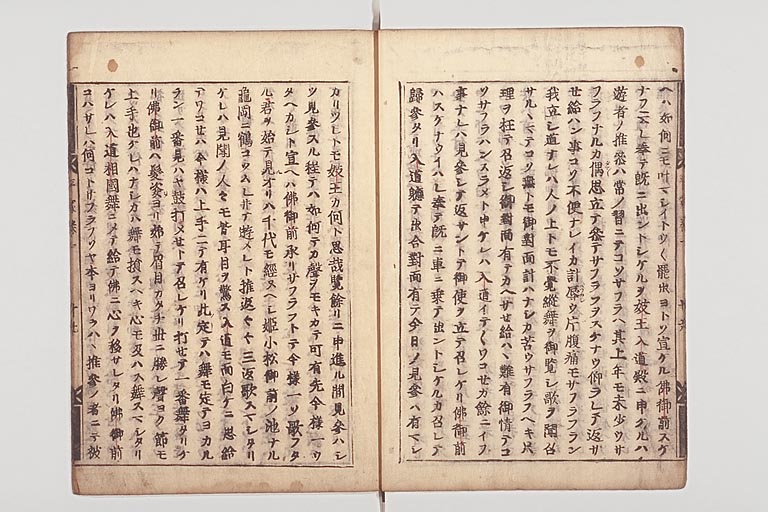 ヘハ如何ニモ叶マレイトツく罷出ヨトソ宣ケル佛御前スケ
ナフ云レ奉テ既ニ出ントシケルヲ妓王入道殿ニ申ケルハ
遊者ノ推参ハ常ノ習ニテコソサフラヘ其上年モ未少ウサ
フラフナルカ偶思立テ参テサフラフヲスケナウ仰ラレテ返サ
せ給ハン事コソ不便ナレイカ計辱ウ片腹痛モサフラフラン
我立シ道ナレハ人ノ上トモ不覚縦舞ヲ御覧シ歌ヲ聞召
サルヽマテコソ無トモ御對面計ハナシカ苦ウサフラフヘキ只
理ヲ枉テ召返シ御對面有テカヘサせ給ハヽ難有御情テコ
ソサフラハンスラメト申ケレハ入道イテくワコせカ餘ニイフ
事ナレハ見参シテ返サントテ御使ヲ立テ召レケリ佛御前
ハスケナウイハレ奉テ既ニ車ニ乗テ出ントシケルカ召レテ
歸参タリ入道軈テ出合對面有テ今日ノ見参ハ有マシ
カリツレトモ妓王カ何ト思哉覽餘リニ申進ル間見参ハシ
ツ見参スル程テハ如何テカ聲ヲモキカテ可有先今様一ツ
歌ヘカシト宣ヘハ佛御前承リサフラフトテ今様一ソ歌フタ
ル君ヲ始テ見オリハ千代モ經ヌヘシ姫小松御前ノ池ナル
龜岡ニ鶴コソムレ井テ遊メレト推返くく三返歌スマシタリ
ケレハ見聞ノ人々モ皆耳目ヲ驚ス入道モ面白ケニ思給
テワコせハ今様ハ上手ニテ有ケリ此定テハ舞モ定テヨカル
ラン一番見ハヤ鼓打メせトテ召レケリ打せテ一番舞タリケ
リ佛御前ハ髪姿ヨリ始テ眉目カタチ世ニ勝レ聲ヨク節モ
上手也ケレハナシカハ舞モ損スヘキ心モ及ハス舞スマシタリ
ケレハ入道相國舞ニメテ給テ佛ニ心ヲ移サレタリ佛御前
コハサレハ何コトサフラフソヤ本ヨリワラハヽ推参ノ者ニテ被